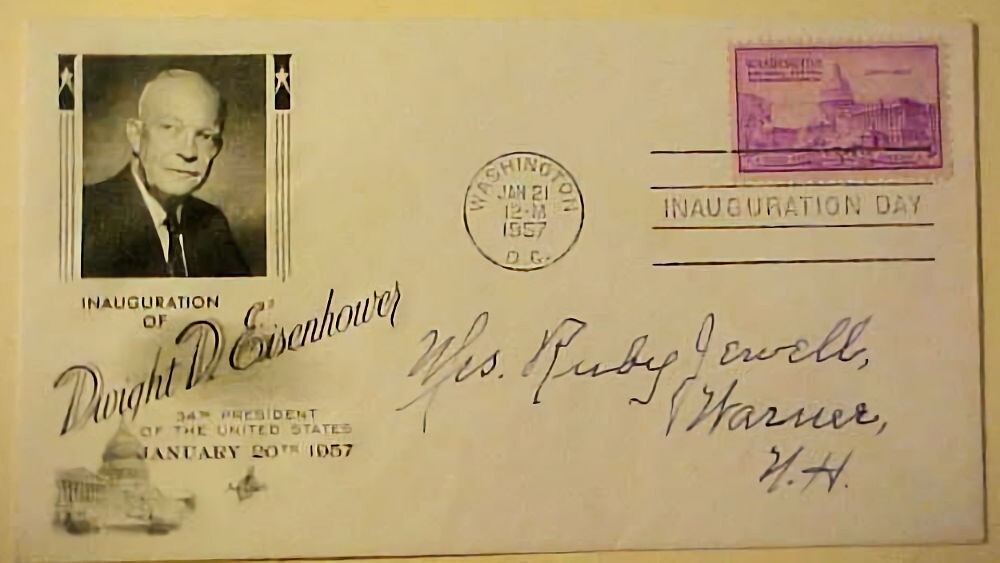 INAUGURATION
OF
Dwight D. Eisenhower
34TH PRESIDENT
OF THE UNITED STATES
JANUARY 20TH 1957
WASHINGTON
JAN 21
12-M
1957
D.C.
WASHINGTON
INAUGURATION DAY
Mrs. Ruby Jewell,
Warner,
N.H.